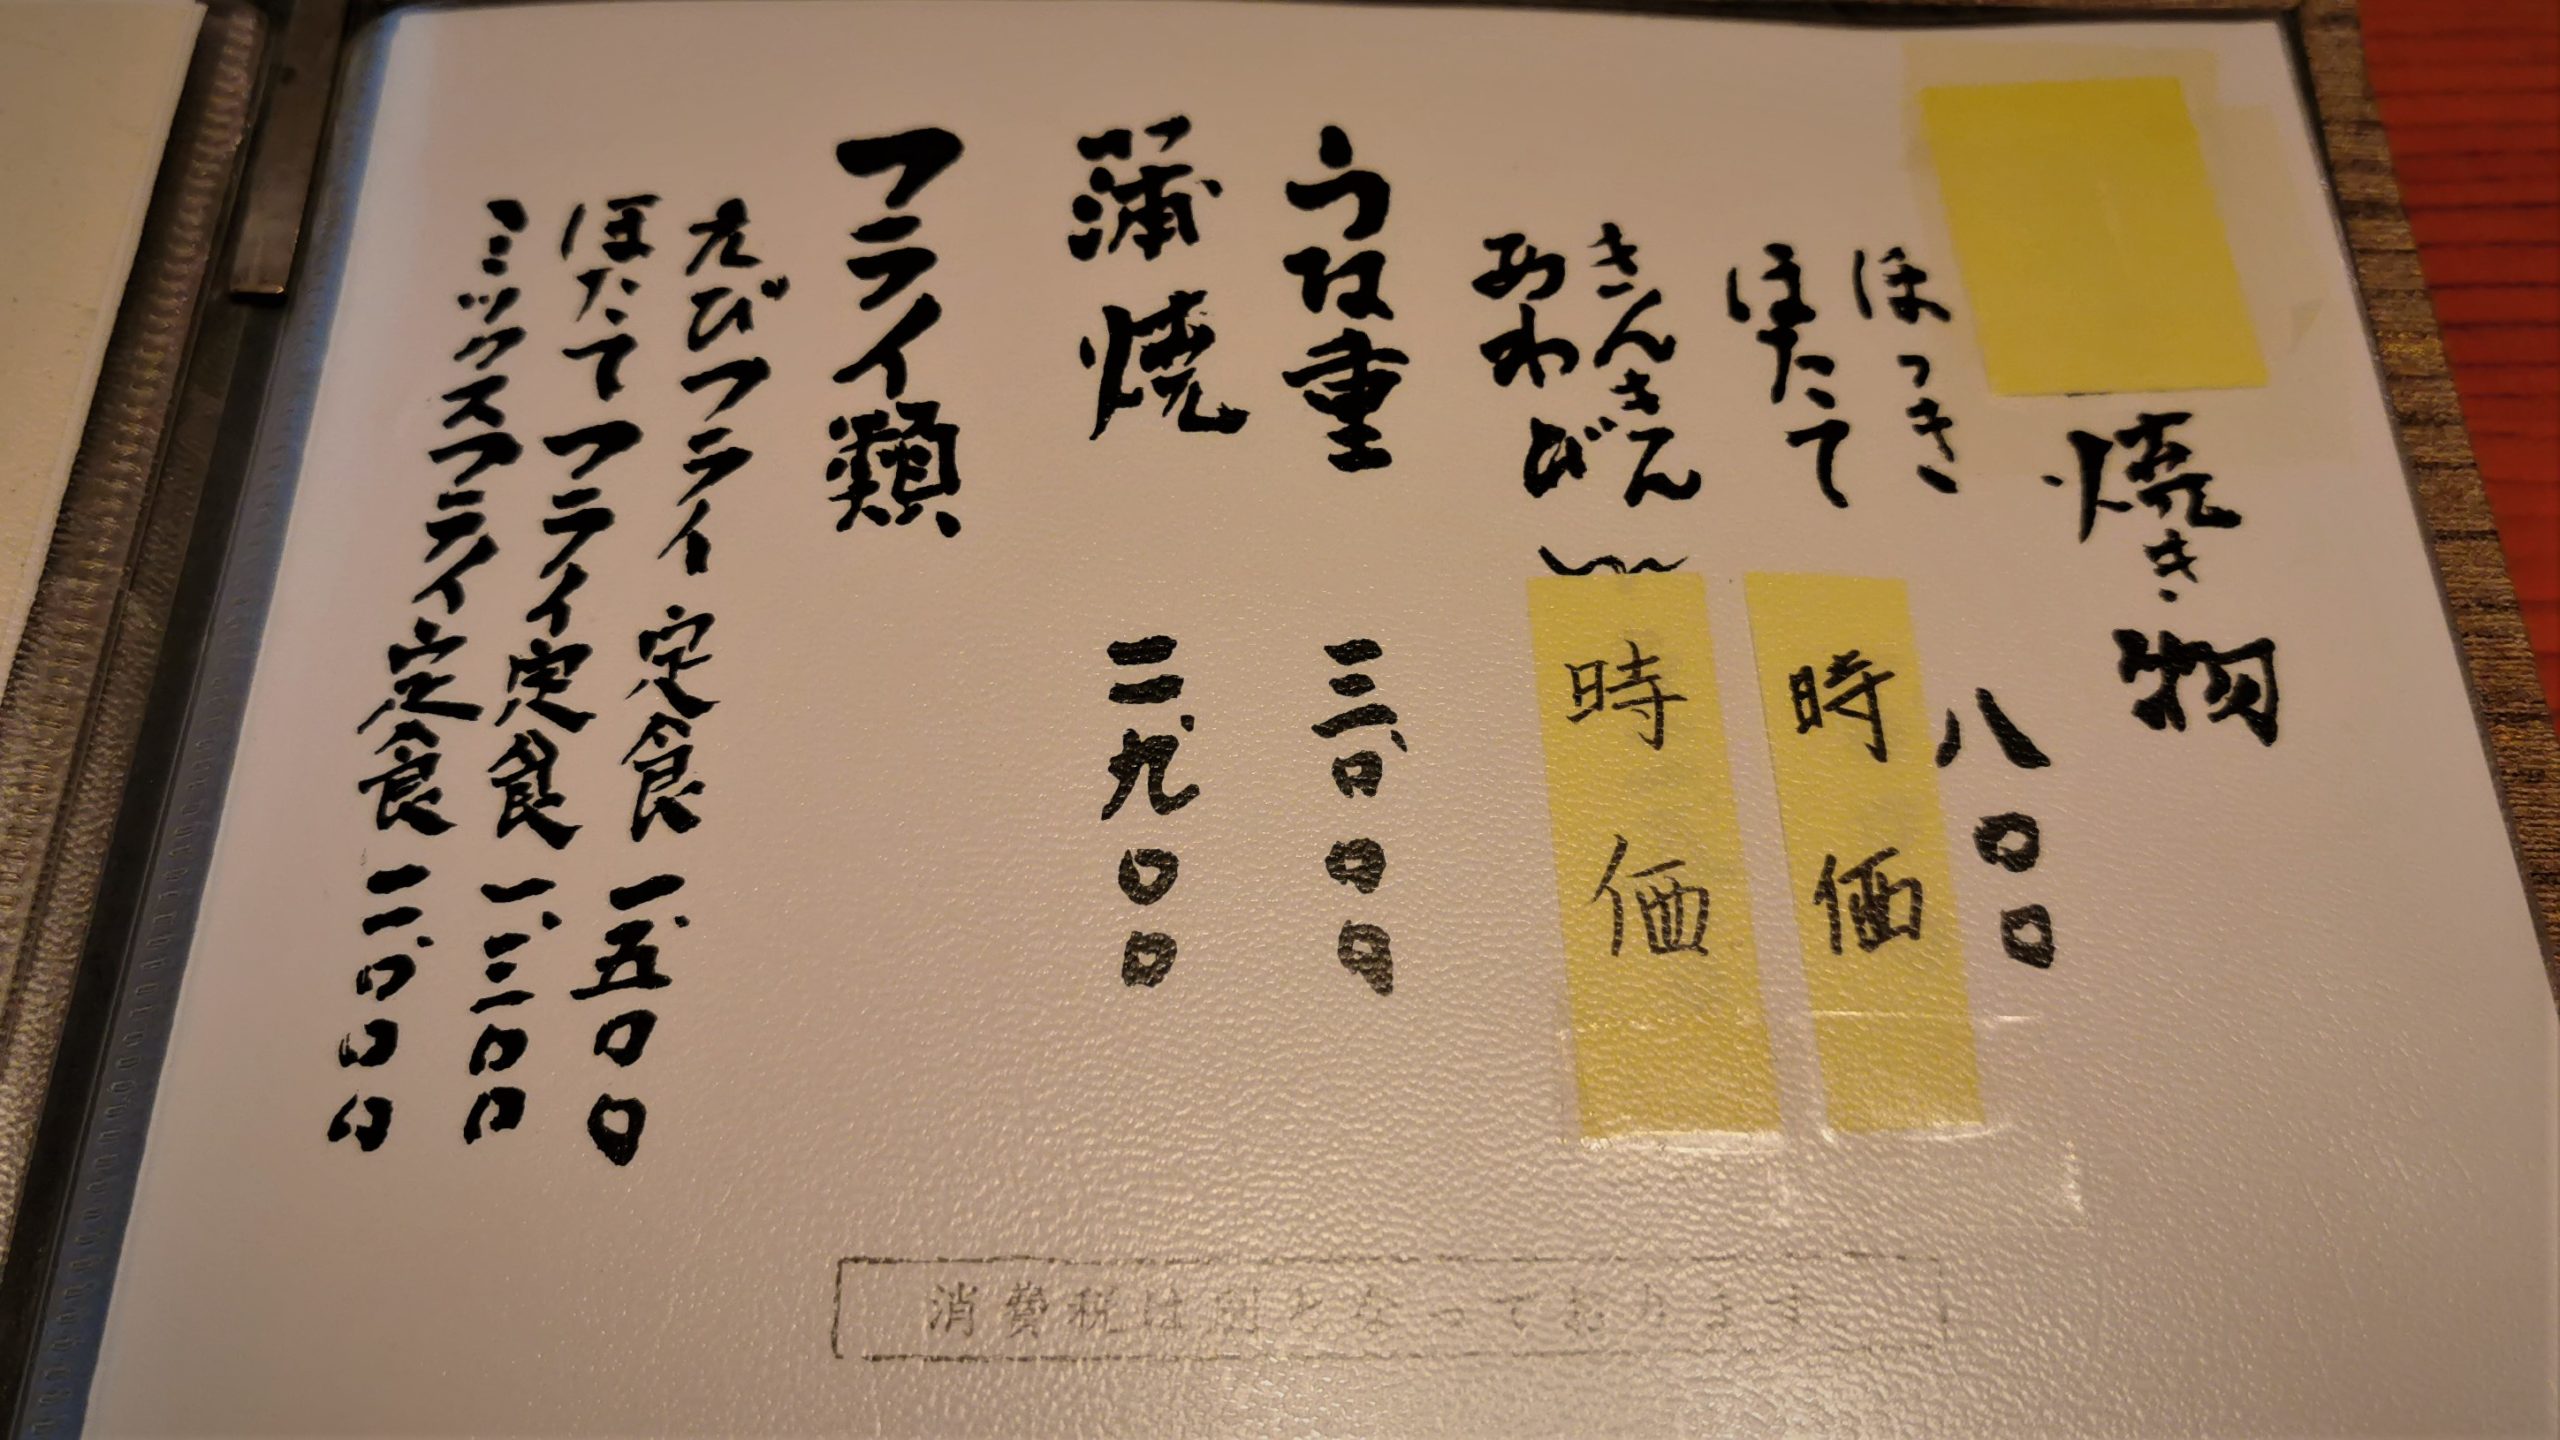 焼き物
ほっき 八〇〇
ほたて 時価
きんきん
あわび 時価
うな重 三、〇〇〇
蒲焼 二、九〇〇
フライ類
えびフライ定食 一、五〇〇
ほたてフライ定食 一、三〇〇
ミックスフライ定食 二、〇〇〇
消費税は別となっております